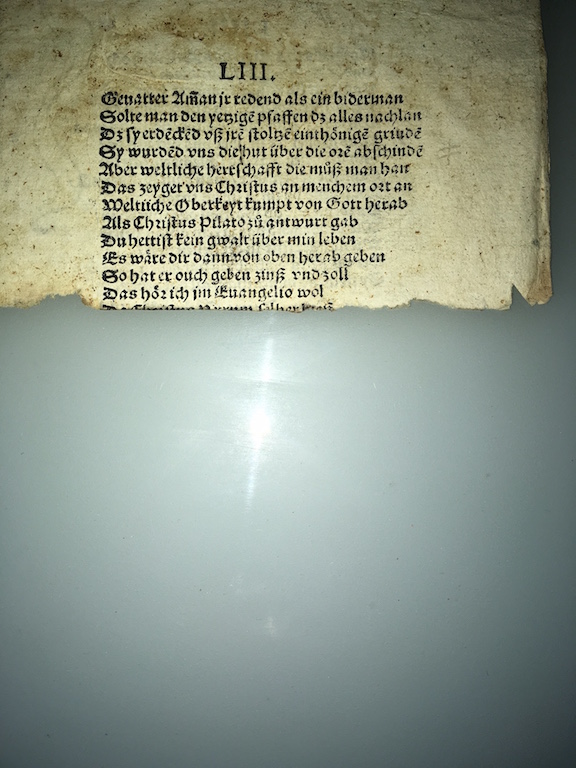 LIII.
Gevatter Am̃an jr redend als ein biderman
Solte man den yetzigẽ pfaffen dz alles nachlan
Dz sy erdẽckẽd vß jrẽ stoltzẽ einthönigẽ grindẽ
Sy wurdẽd vns die hut über die orẽ abschindẽ
Aber weltliche herrschafft die můß man han
Das zeyget vns Christus an menchem ort an
Weltliche Oberkeyt kumpt von Gott herab
Als Christus Pilato zů antwurt gab
Du hettist kein gwalt über min leben
Es wäre dir dann von oben herab geben
So hat er ouch geben zinß vnd zoll
Das hör ich jm Euangelio wol